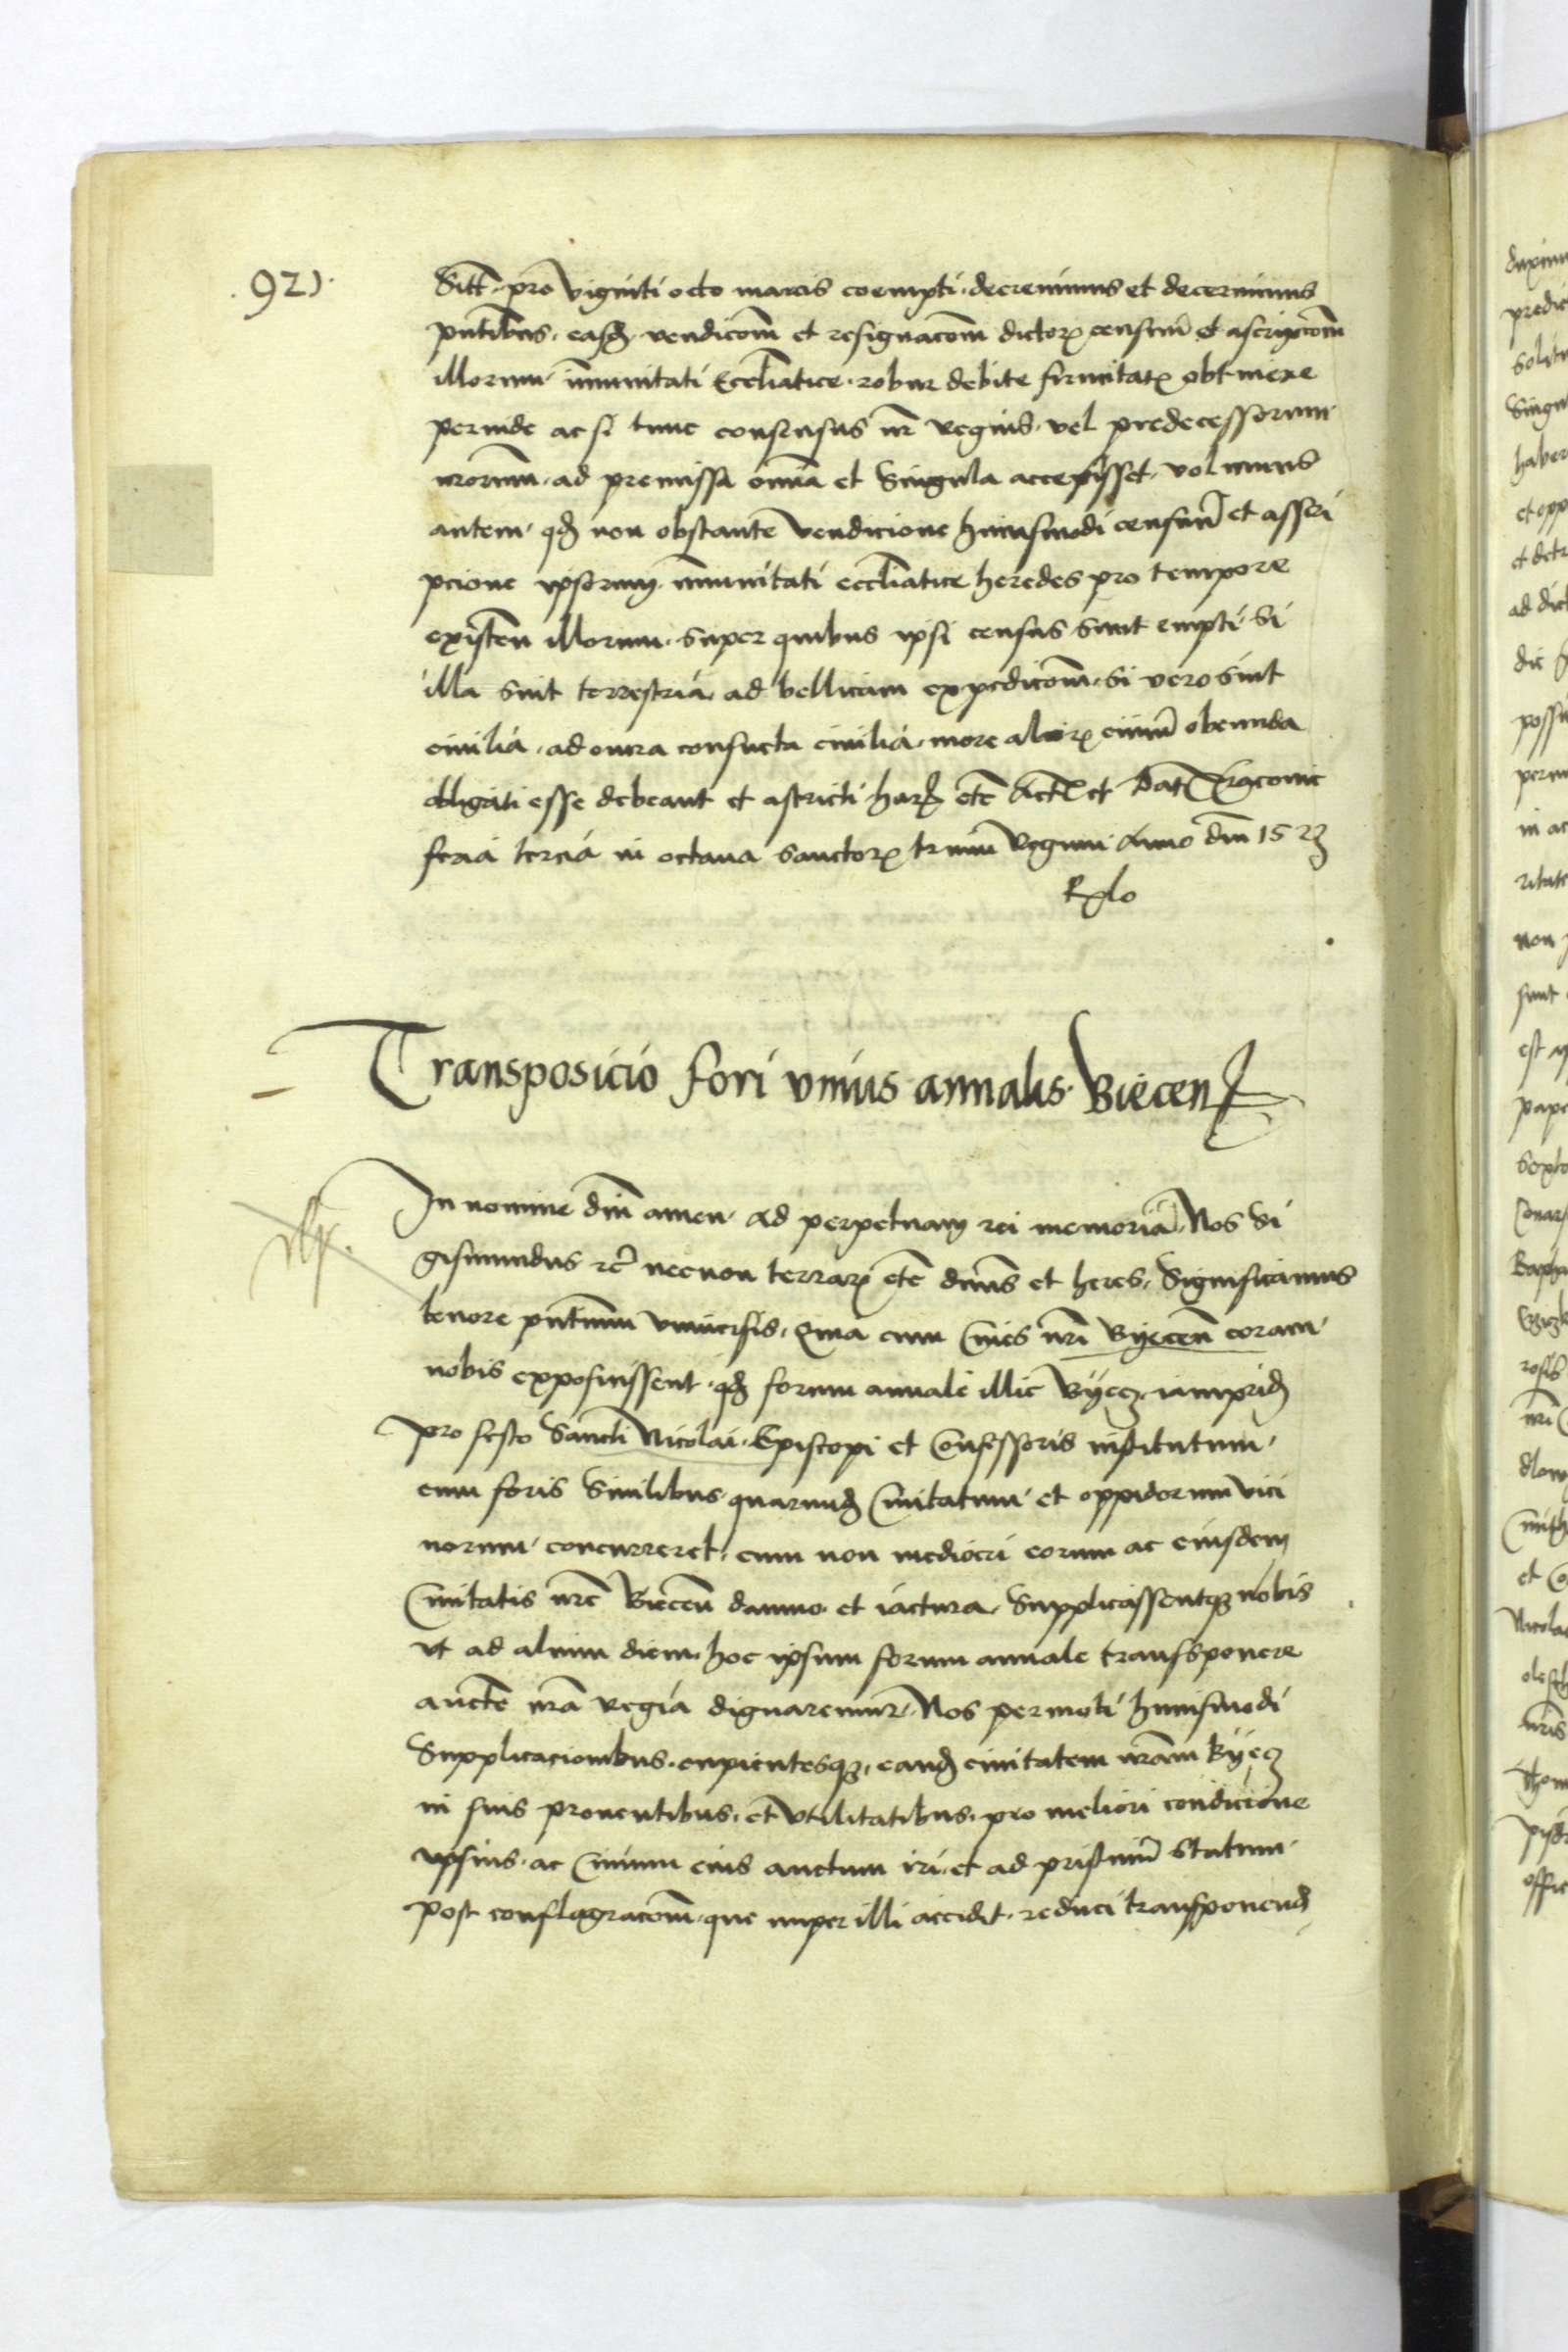 .921.
Sitt. pro viginti octo marcis coempti. decrevimus et decernimus
pntibus. easd vendicom et resignacom dictor censuu et ascripcom
illorum immunitati Eccliastice. robur debite firmitat obtinere
perinde ac si tunc consensus nr regius. vel predecessorum
nrorum. ad premissa omnia et singula accessisset. volumus
autem. qd non obstante vendicione huiusmodi censuu et asscri
pcione ipsorum immunitati eccliastice heredes pro tempore
existen illorum. super quibus ipsi census sunt empti. si
illa sint terrestria. ad bellicam expedicom. si vero sint
civilia. ad onera consueta civilia. more alior civiu obeunda
obligati esse debeant et astricti har etc Act et Dat Cracovie
feria tercia in octava sanctor trium Regum Anno dni 1523
Rlo
Transposicio fori unius annalis Biecen
In nomine dni amen. Ad perpetuam rei memoria. Nos Si
gismundus rc necnon terrar etc dnus et heres. Significamus
tenore pntium universis. Quia cum Cives nri Byecen coram
nobis exposuissent. qd forum annale illic Byecz. iamprid
pro festo Sancti Nicolai. Episcopi et Confessoris institutum.
cum foris similibus quarund Civitatum et oppidorum vici
norum concurreret. cum non mediocri eorum ac eiusdem
Civitatis nre Biecen damno et iactura. Supplicassentq nobis
ut ad alium diem. hoc ipsum forum annale transsponere
aucte nra regia dignaremur. Nos permoti huiusmodi
Supplicacionibus. cupientesq. eand civitatem nram Byecz
in suis proventibus. et utilitatibus. pro meliori condicione
ipsius. ac Civium eius auctum iri. et ad pristinu statum
post conflagracom. que nuper illi accidit. reduci transponend